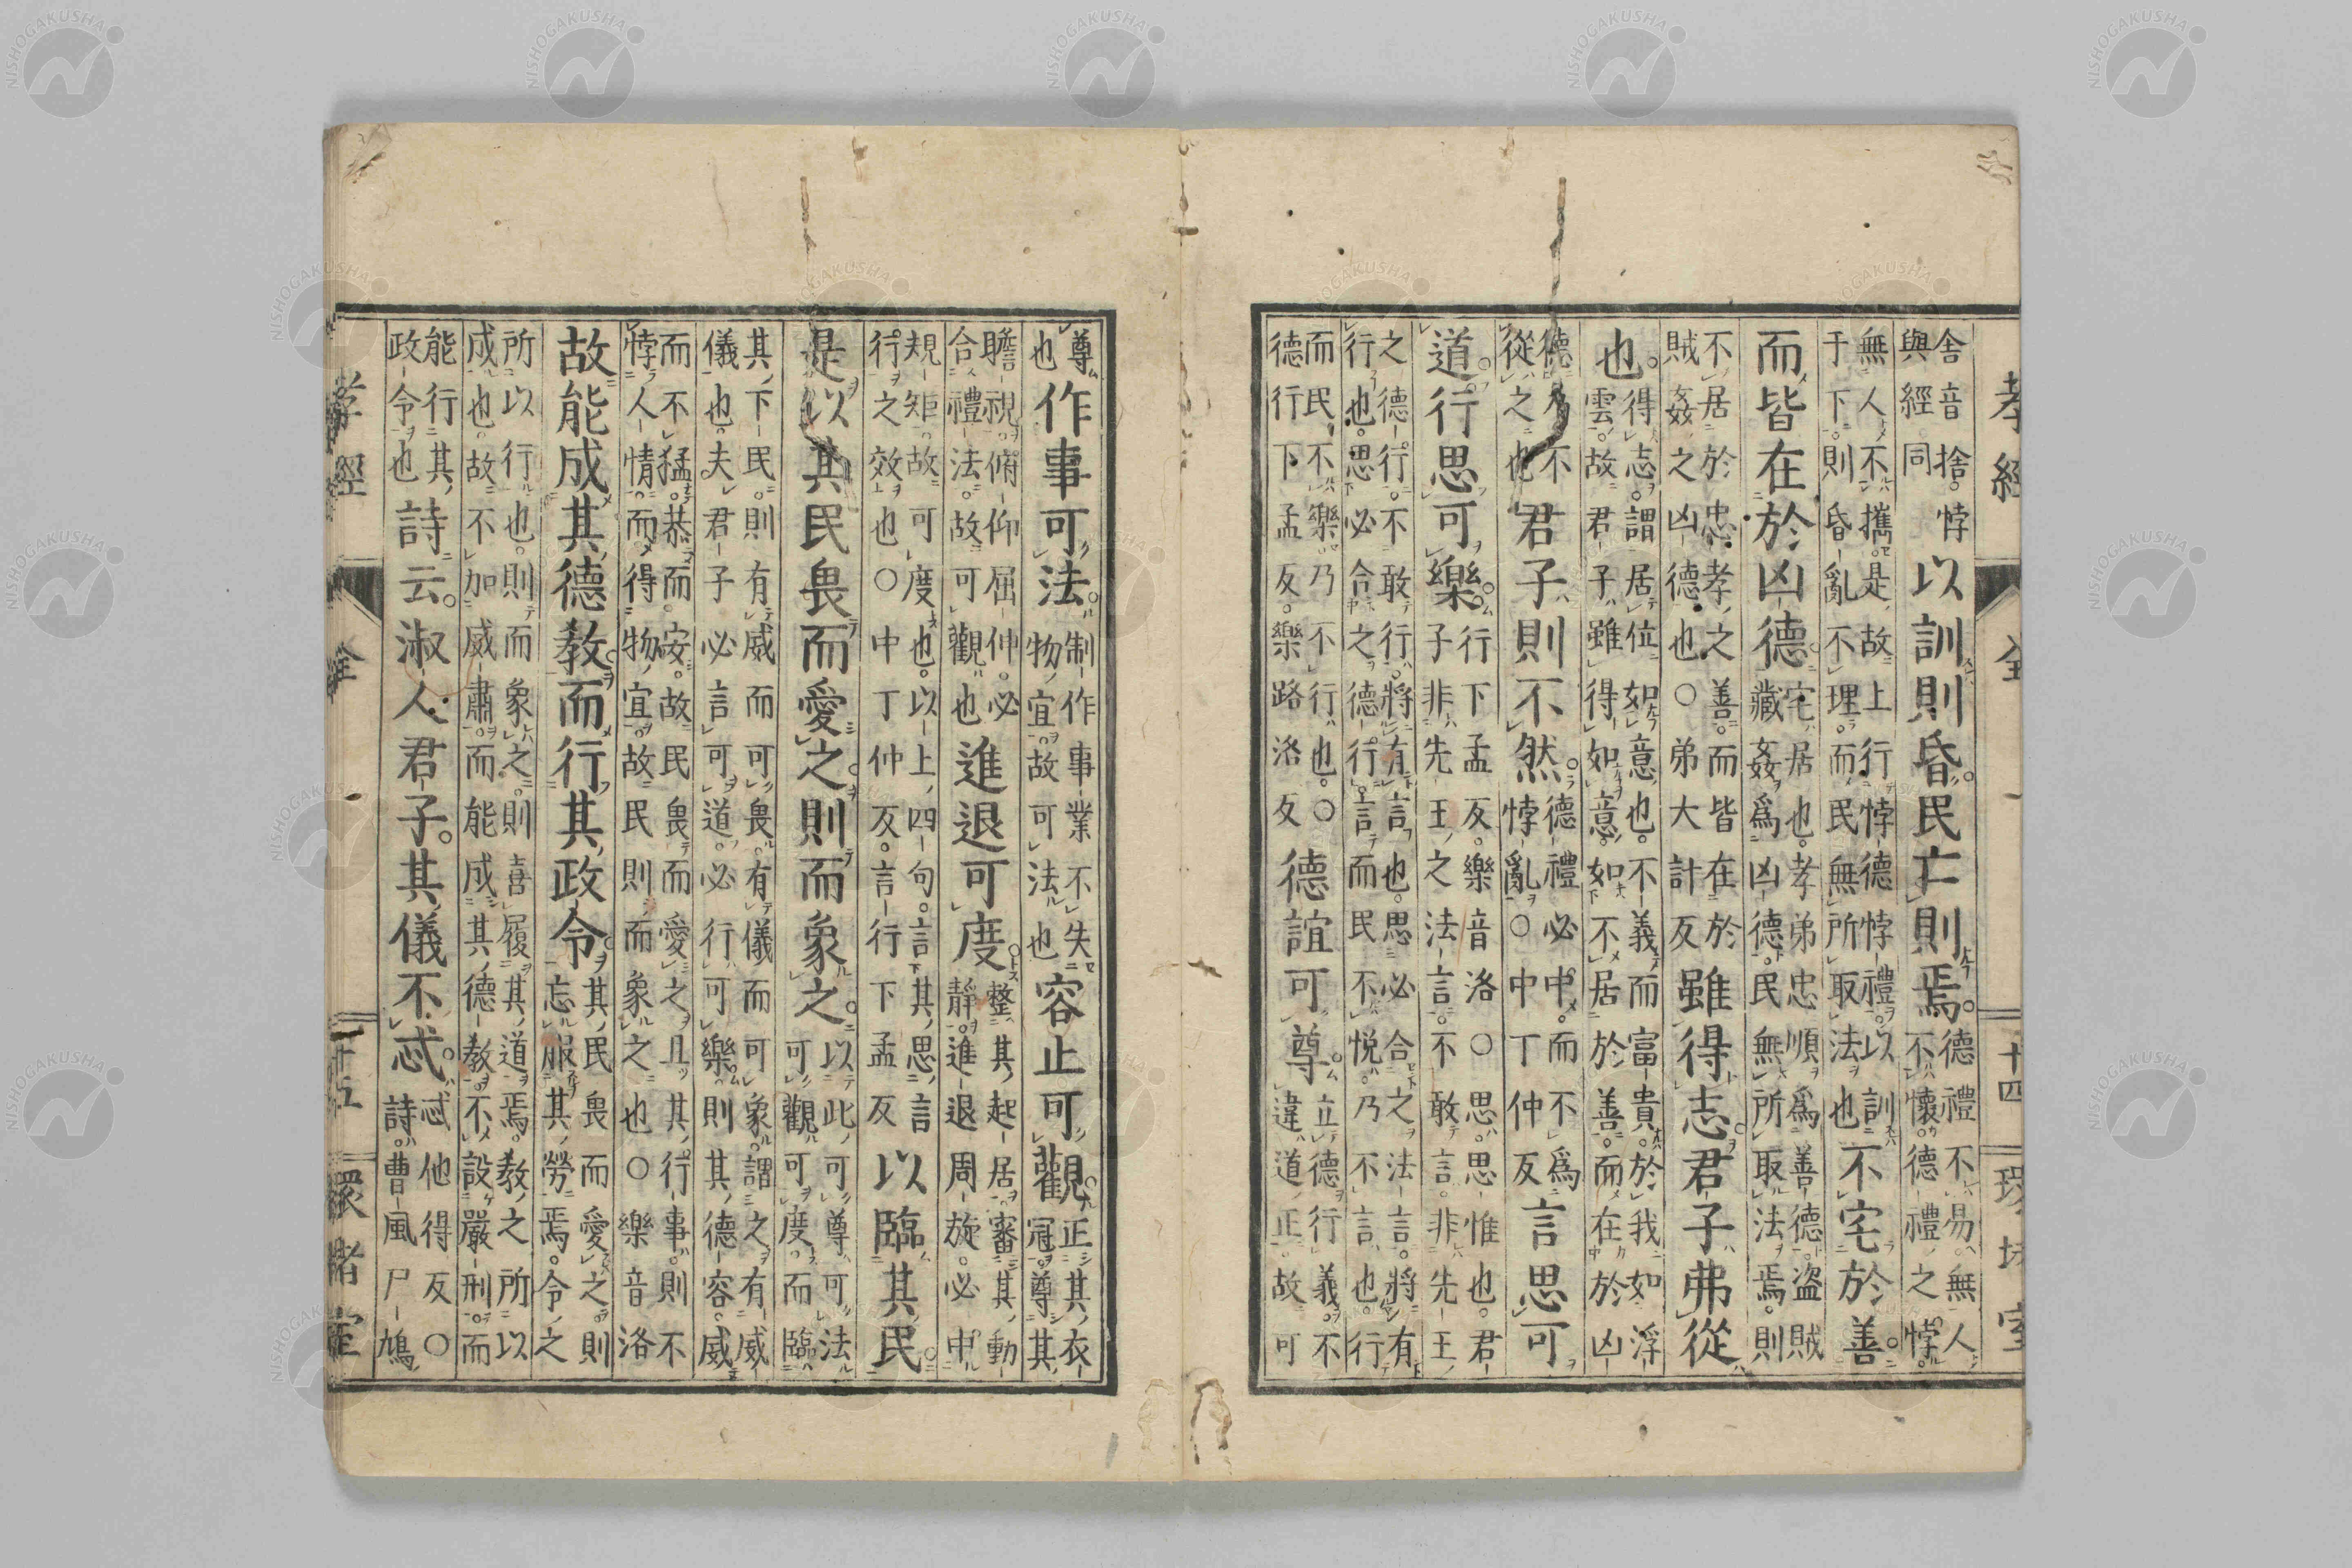 孝經 全 十四 環堵室
舍音捨。悖與經同以訓則昏。民亡則焉。德禮不易。無人不懷。德禮之悖。
無人不攜。是故上行悖德悖禮。以訓于下。則昏亂不理。而民無所取法也不宅於善。
而皆在於凶德宅居也。孝弟忠順爲善德。盜賊藏姦爲凶德。民無所取法焉。則
不居於忠孝之善。而皆在於賊姦之凶德也○弟大計反雖得志。君子弗從
也。得志。謂居位如意也。不義而富貴。於我如浮雲。故君子雖得如意。如不居於善。而在於凶
德乃不從之也君子則不然。德禮必中。而不爲悖亂○中丁仲反言思可
道。行思可樂。行下孟反。樂音洛○思。思惟也。君子非先王之法言。不敢言。非先王
之德行。不敢行。將有言也。思必合之法言。將有行也。思必合之德行。言而民不悅。乃不言也。行
而民不樂。乃不行也。○德行下孟反。樂路洛反德誼可尊。立德行義。不違道正。故可
尊也作事可法。制作事業不失物宜。故可法也容止可觀。正其衣冠。尊其
瞻視。俯仰屈伸。必合禮法。故可觀也進退可度。整其起居。審其動靜。進退周旋。必中
規矩。故可度也。以上四句。言其思言行之效也○中丁仲反。言行下孟反以臨其民。
是以其民畏而愛之。則而象之。以此可尊可法可觀可度。而臨
其下民。則有威而可畏。有儀而可象。謂之有威儀也。夫君子必言可道。必行可樂。則其德容。威
而不猛。恭而安。故民畏而愛之。且其行事。則不悖人情。而得物宜。故民則而象之也○樂音洛
故能成其德教。而行其政令。其民畏而愛之。則忘服其勞焉。令之
所以行也。則而象之。則喜履其道焉。教之所以成也。故不加威肅。而能成其德教。不設嚴刑。而
能行其政令也詩云。淑人君子。其儀不忒。忒他得反○詩。曹風尸鳩
孝經 全 十五 環堵室
NISHOGAKUSHA